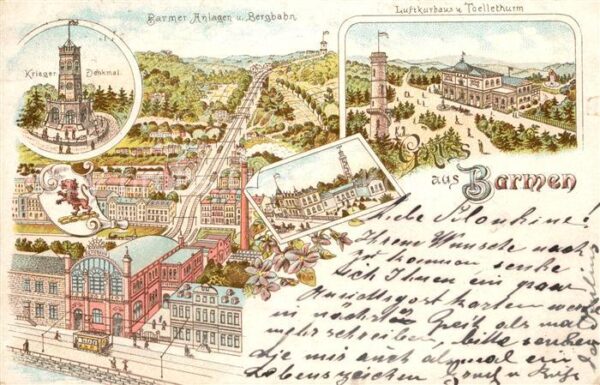 Barmer Anlagen u. Bergbahn
Luftkurhaus u Toellethurm
Krieger Denkmal.
Gruss
aus Barmen
Liebe !
Ihrem Wunsche nach
kommen sende
ich Ihnen ein paar
Ansichtspostkarten
in nächster Zeit als mal
mehr schreiben, bitte senden
Sie mir auch als mal ein
Lebenszeichen